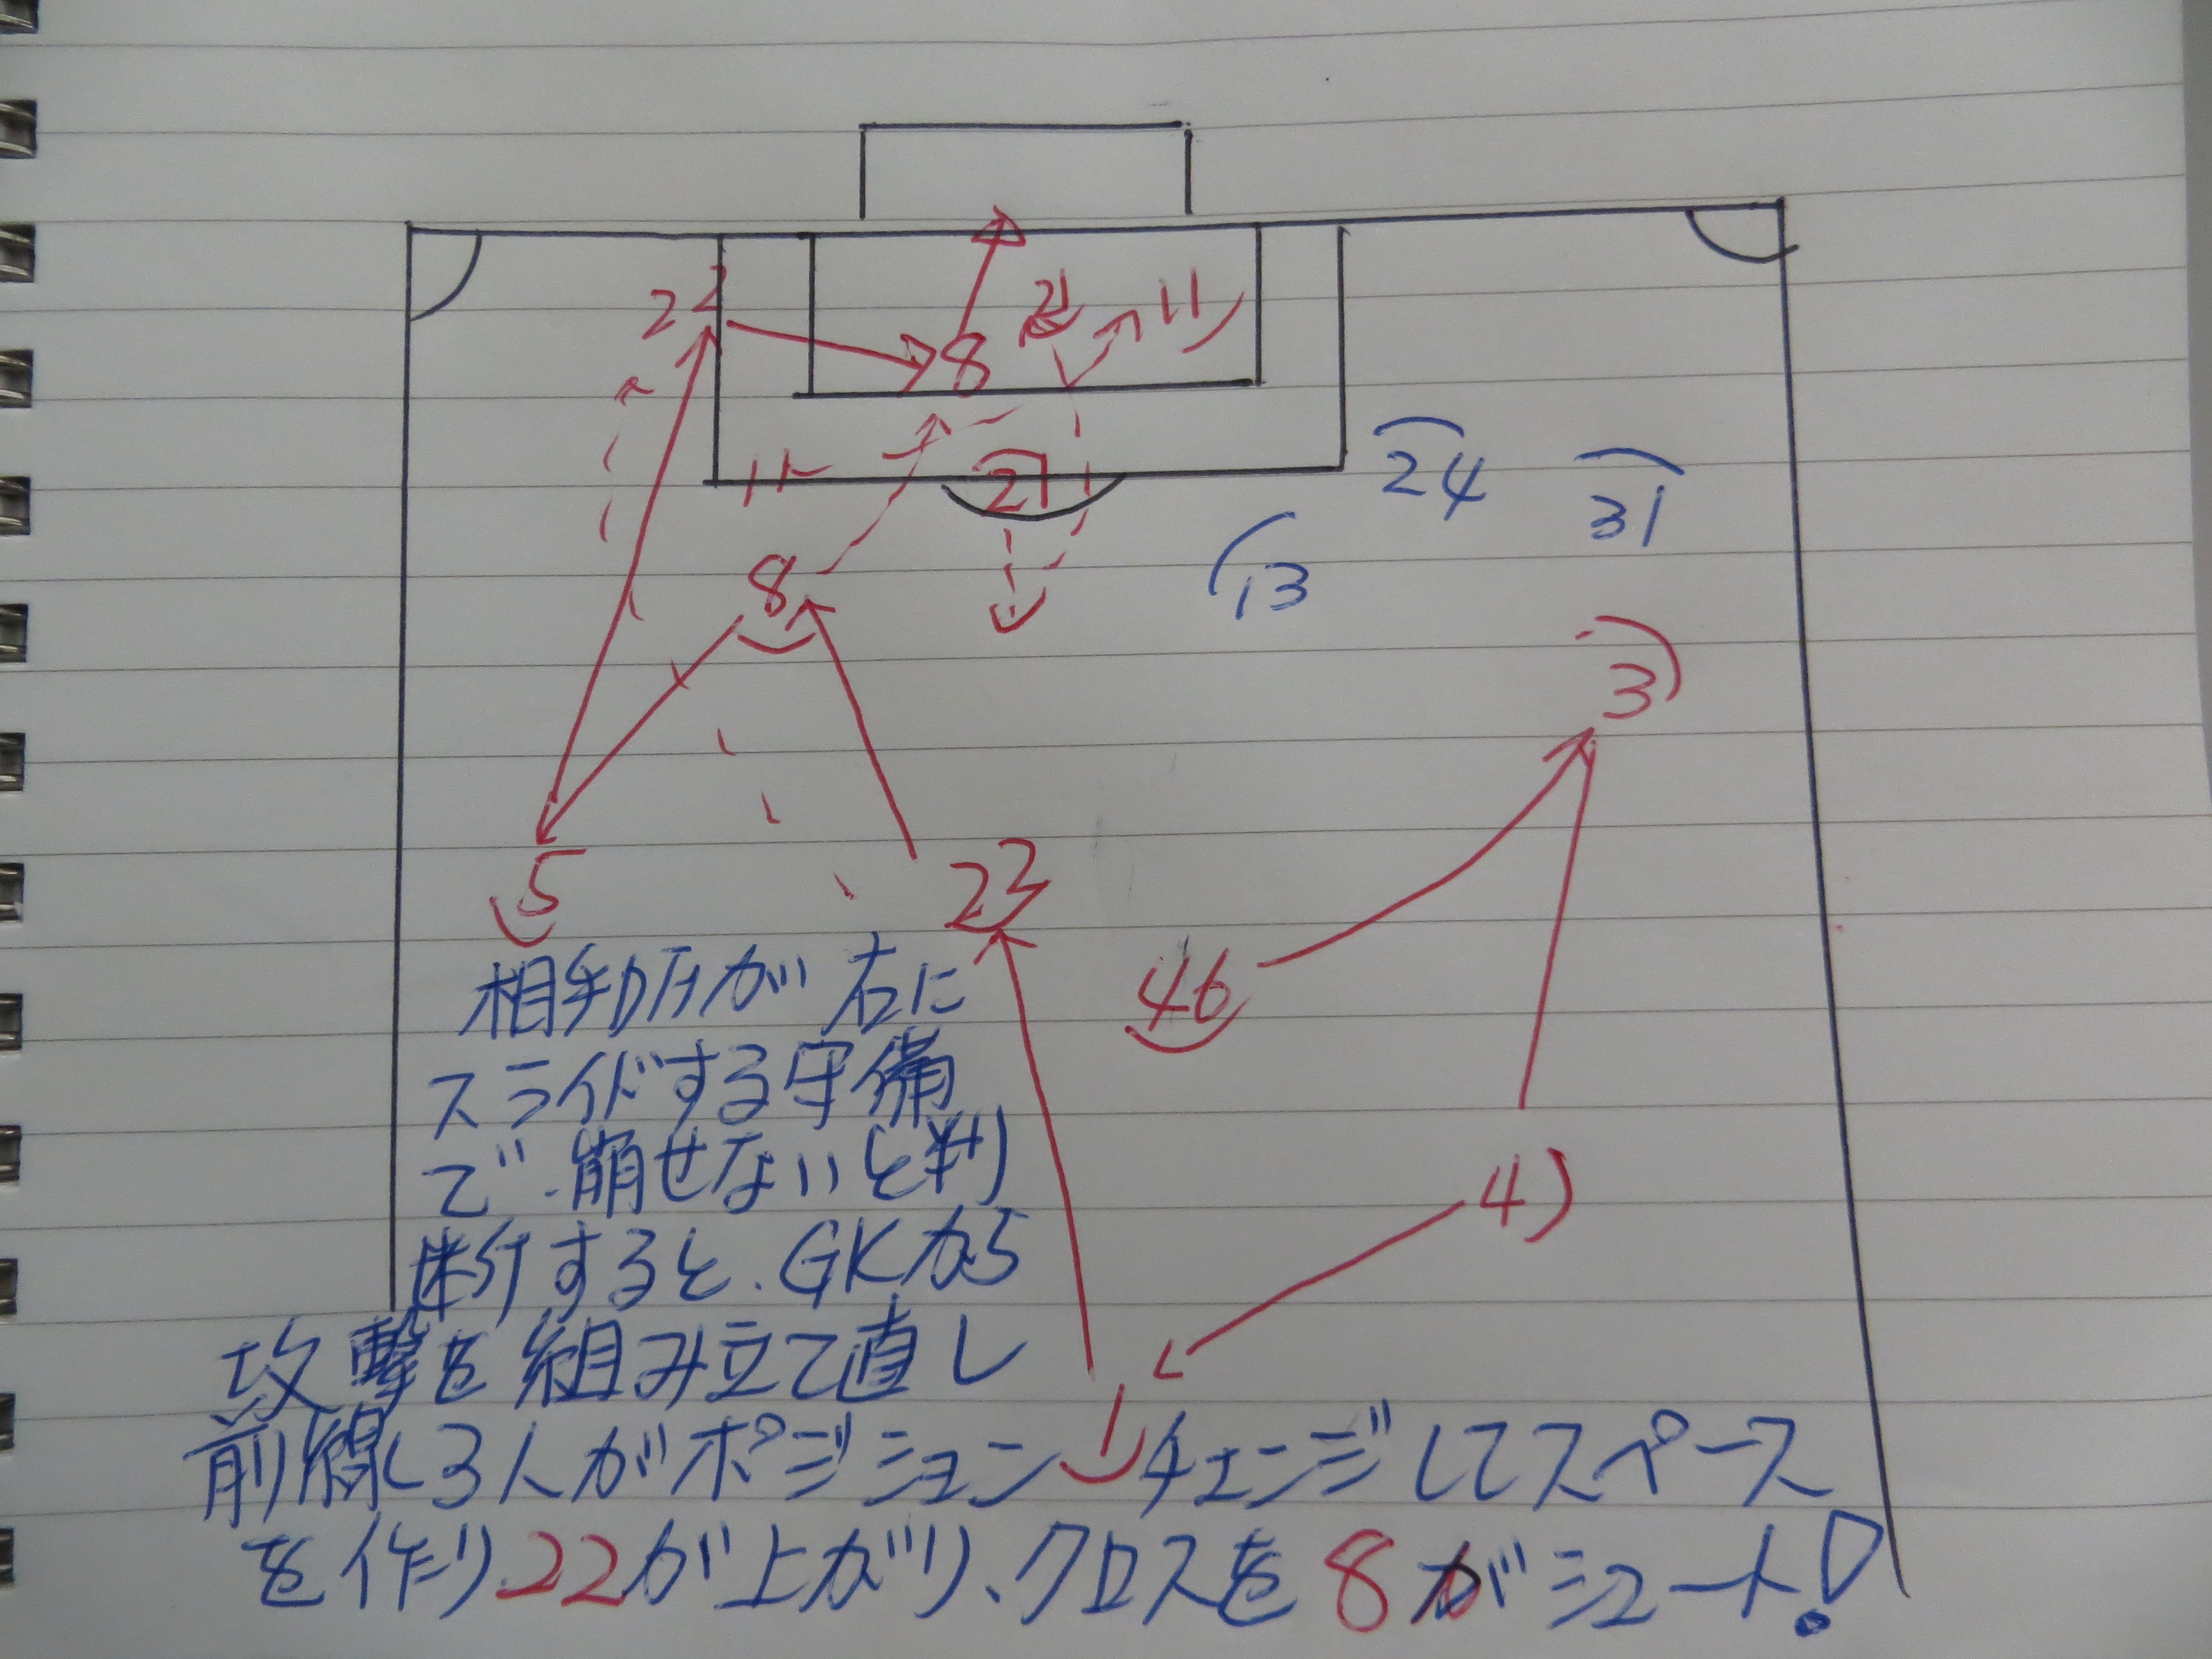 22
21
11
8
11
21
24
31
8
13
3
5
23
46
相手DFが右に
スライドする守備
で崩せないと判
4
断すると、GKから
攻撃を組み立て直し
1
前線3人がポジションチェンジしてスペース
を作り22が上がり、クロスを8がシュート!